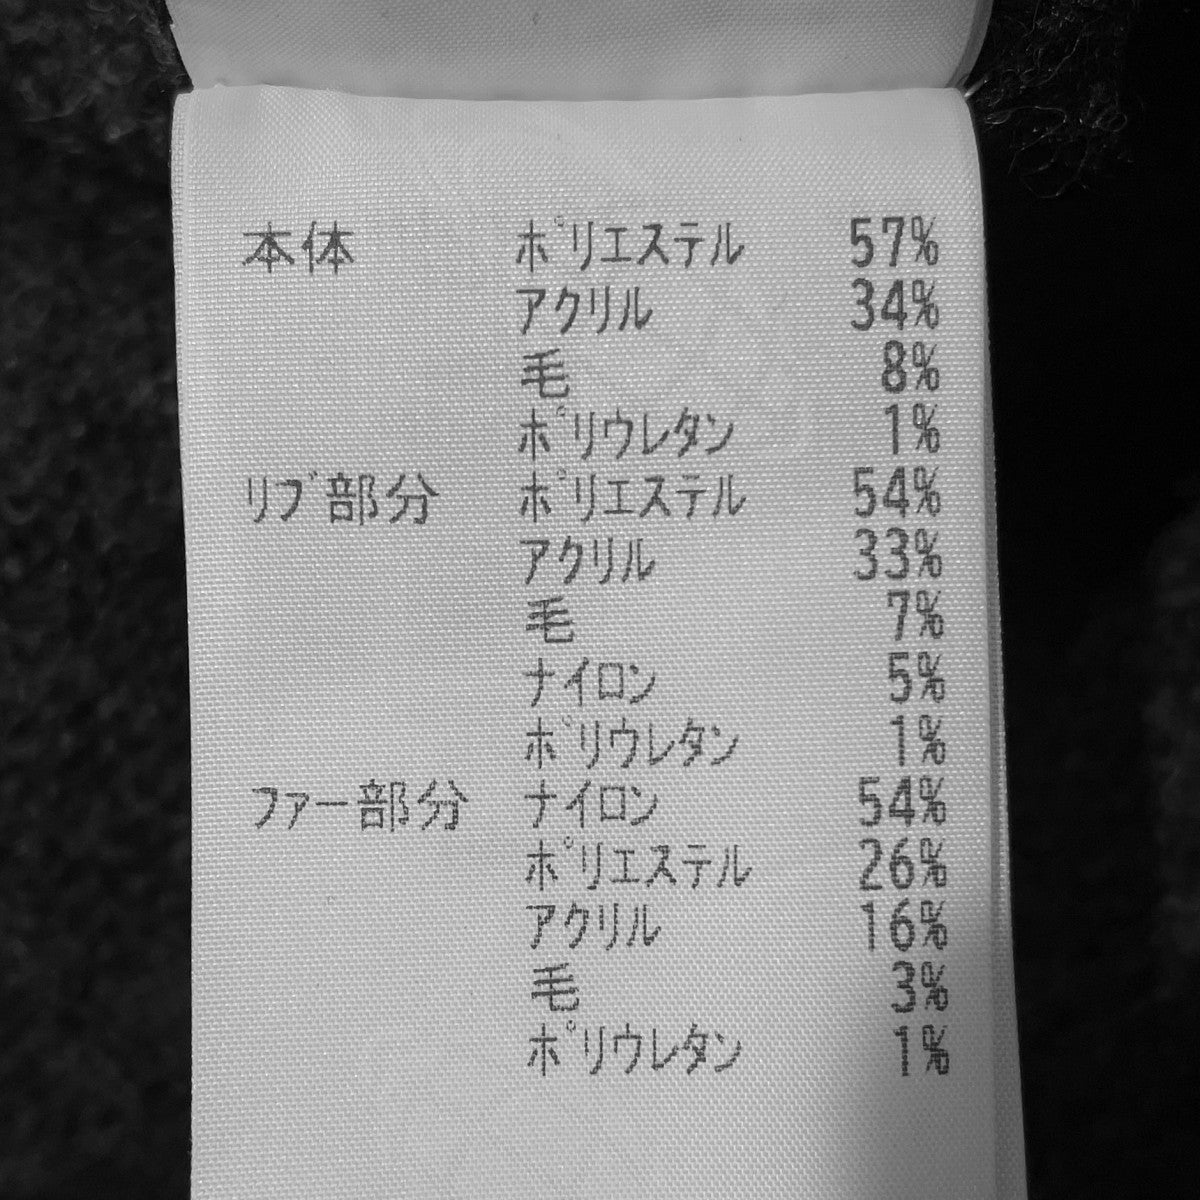 本体 ポリエステル 57%
アクリル 34%
毛 8%
ポリウレタン 1%
リブ部分 ポリエステル 54%
アクリル 33%
毛 7%
ナイロン 5%
ポリウレタン 1%
ファー部分 ナイロン 54%
ポリエステル 26%
アクリル 16%
毛 3%
ポリウレタン 1%